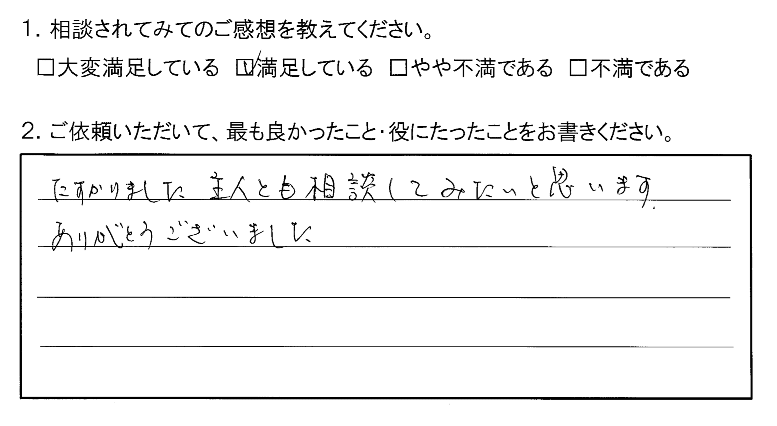 1. 相談されてみてのご感想を教えてください。
□大変満足している ☑満足している □やや不満である □不満である
2. ご依頼いただいて、最も良かったこと・役にたったことをお書きください。
たすかりました 主人とも相談してみたいと思います.
ありがとうございました